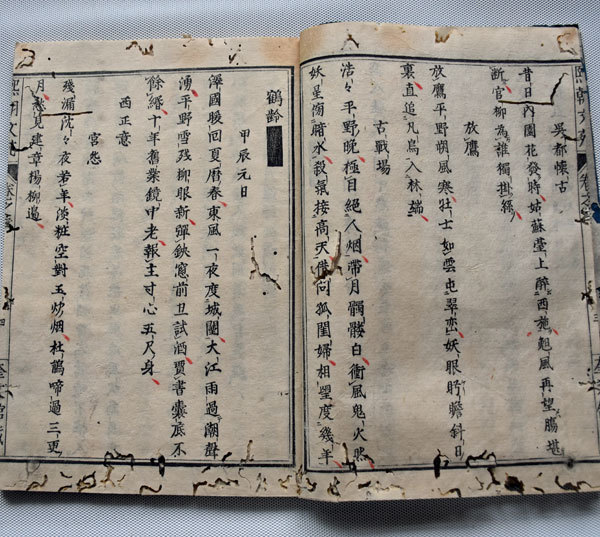 吳都懷古
昔日内園花發時姑蘇臺上醉西施風再望腸堪
断官柳為誰獨掛絲
放鷹
放鷹平野朔風寒壮士如雲屯翠巒妖眼盱瞻斜日
裏直追凡鳥入林端
古戦場
浩々平野晩極目絶人烟帶月髑髏白衝風鬼火然
妖星隕暗水殺氣接高天借問狐閨婦相望度幾年
鶴齡
甲辰元日
澤國暖回夏暦春東風一夜度城闉大江雨過潮聲
湧平野雪残柳眼新弾鋏窓前且試酒賈書囊底不
餘緡十年舊業鏡中老報主寸心五尺身
西正意
宮怨
残漏沈々夜若年淡粧空對玉炉烟杜鵑啼過三更
月愁見建章楊柳邊